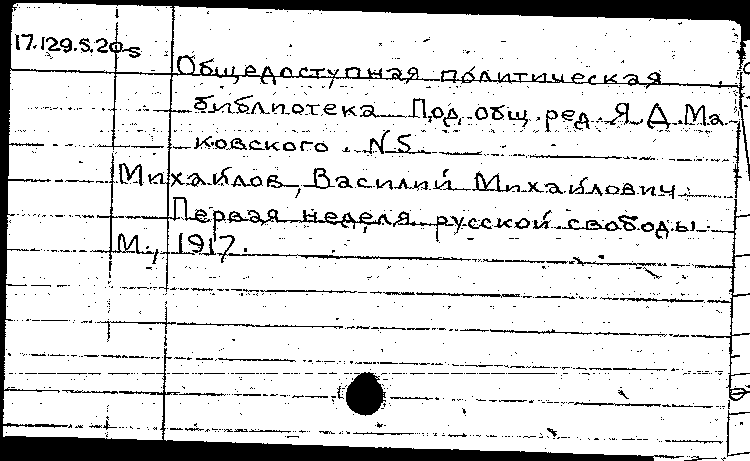 17.129.s.20 s
Общедоступная политическая
библиотека Под общ. ред. Я.Д. Ма
ковского. N5.
Михайлов, Василий Михайлович.
Первая неделя русской свободы.
М., 1917.